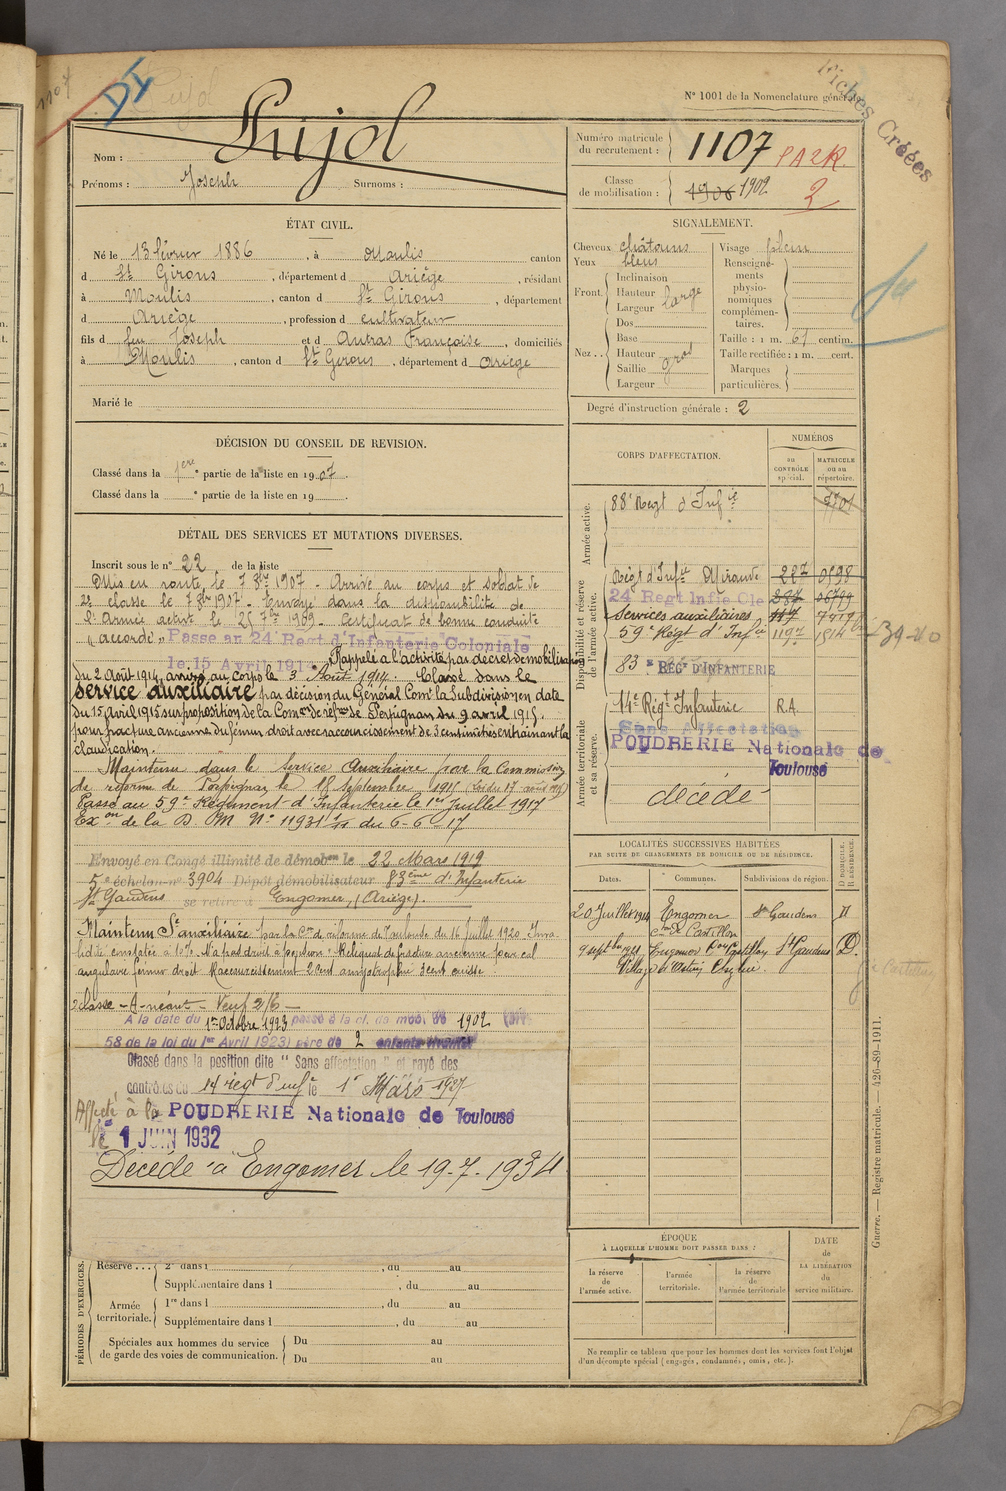 1107
DI
Pujol
Fiches Créées
N° 1001 de la Nomenclature générale
Nom : Pujol
Prénoms : Joseph Surnoms :
Numéro matricule du recrutement : 1107 PA2R.
Classe de mobilisation : 1906 1902 2
ÉTAT CIVIL.
Né le 13 février 1886, à Moulis canton
d St Girons, département d Ariège, résidant
à Moulis, canton d St Girons, département
d Ariège, profession d cultivateur
fils d feu Joseph et d Autras Françoise, domiciliés
à Moulis, canton d St Girons, département d Ariège
Marié le
SIGNALEMENT.
Cheveux châtains
Yeux bleus
Front.
Inclinaison
Hauteur
Largeur
large
Nez..
Dos
Base
Hauteur
Saillie
Largeur
gros
Visage plein
Renseignements physionomiques complémentaires.
Taille : 1 m. 61 centim.
Taille rectifiée : 1 m. cent.
Marques particulières.
Degré d'instruction générale : 2
DÉCISION DU CONSEIL DE REVISION.
Classé dans la 1ère partie de la liste en 1907.
Classé dans la e partie de la liste en 19
DÉTAIL DES SERVICES ET MUTATIONS DIVERSES.
Inscrit sous le n° 22 de la liste
Mis en route le 7 8bre 1907 - Arrivé au corps et soldat de
2e classe le 7 8bre 1907 - Envoyé dans la disponibilité de
l'Armée active le 25 7bre 1909 - Certificat de bonne conduite
"accordé" Passé au 24e Regt d'Infanterie Coloniale
le 15 Avril 191 Rappelé à l'activité par décret de mobilisation
du 2 Août 1914, arrivé au corps le 3 Août 1914. Classé dans le
service auxiliaire par décision du Général Comt la Subdivision en date
du 15 Avril 1915 sur proposition de la Comon de réfme de Perpignan du 9 avril 1915.
pour fracture ancienne du fémur droit avec raccourcissement de 3 centimètres entraînant la
claudication.
Maintenu dans le service Auxiliaire par la Commission
de réforme de Perpignan le 18 septembre 1915 (Loi du 17 août 1915)
Passé au 59e Régiment d'Infanterie le 1er Juillet 1917
Exon de la D. M. N° 11931 du 6-6-17
Envoyé en Congé illimité de démobon le 22 Mars 1919
5e échelon n° 3904 Dépôt démobilisateur 83ème d'Infanterie
St Gaudens se retire à Engomer, (Ariège).
Maintenu Sce auxiliaire par la Con de réforme de Toulouse du 16 Juillet 1920 Inva-
lidité constatée à 10% N'a pas droit à pension : Reliquat de fracture ancienne par cal
angulaire fémur droit Raccourcissement 2 cent amyotrophie 3 cent cuisse.
2 classe - A - néant - Veuf 2/6 -
A la date du 1er Octobre 1923 passé à la cl. de mob. de 1902 (art.
58 de la loi du 1er Avril 1923) père de 2 enfants vivants
Classé dans la position dite "Sans affectation" et rayé des
contrôles du 14 regt d'infie le 1er Mars 1927
Affecté à la POUDRERIE Nationale de Toulouse
le 1 JUIN 1932
Décédé à Engomer le 19.7.1934
CORPS D'AFFECTATION.
NUMÉROS
au CONTRÔLE spécial.
MATRICULE ou au répertoire.
Armée active.
88e Regt d'Infie 7701
Disponibilité et réserve de l'armée active.
Régt d'Infie Mirande 227 0598
24 Regt Infie Cle 387 06799
Services auxiliaires 117
59e Régt d'Infie 1197 1514
39-40
83e RÉGt D'INFANTERIE
Armée territoriale et sa réserve.
14e Régt Infanterie R.A.
Sans Affectation
POUDRERIE Nationale de
Toulouse
décédé
LOCALITÉS SUCCESSIVES HABITÉES
PAR SUITE DE CHANGEMENTS DE DOMICILE OU DE RÉSIDENCE.
Dates. Communes. Subdivisions de région. D. DOMICILE. R. RÉSIDENCE.
20 Juillet 1914 Engomer St Gaudens D
Con de Castillon
9 septbre 1921 Engomer Con Castillon St Gaudens D.
Village
ÉPOQUE
À LAQUELLE L'HOMME DOIT PASSER DANS :
la réserve de l'armée active.
l'armée territoriale.
la réserve de l'armée territoriale
DATE de LA LIBÉRATION du service militaire.
PÉRIODES D'EXERCICES.
Réserve... 2e dans l , du au
Supplémentaire dans l , du au
Armée territoriale. 1re dans l , du au
Supplémentaire dans l , du au
Spéciales aux hommes du service de garde des voies de communication. Du au
Du au
Ne remplir ce tableau que pour les hommes dont les services font l'objet
d'un décompte spécial (engagés, condamnés, omis, etc.).
Guerre. — Registre matricule. — 426-89-1911.